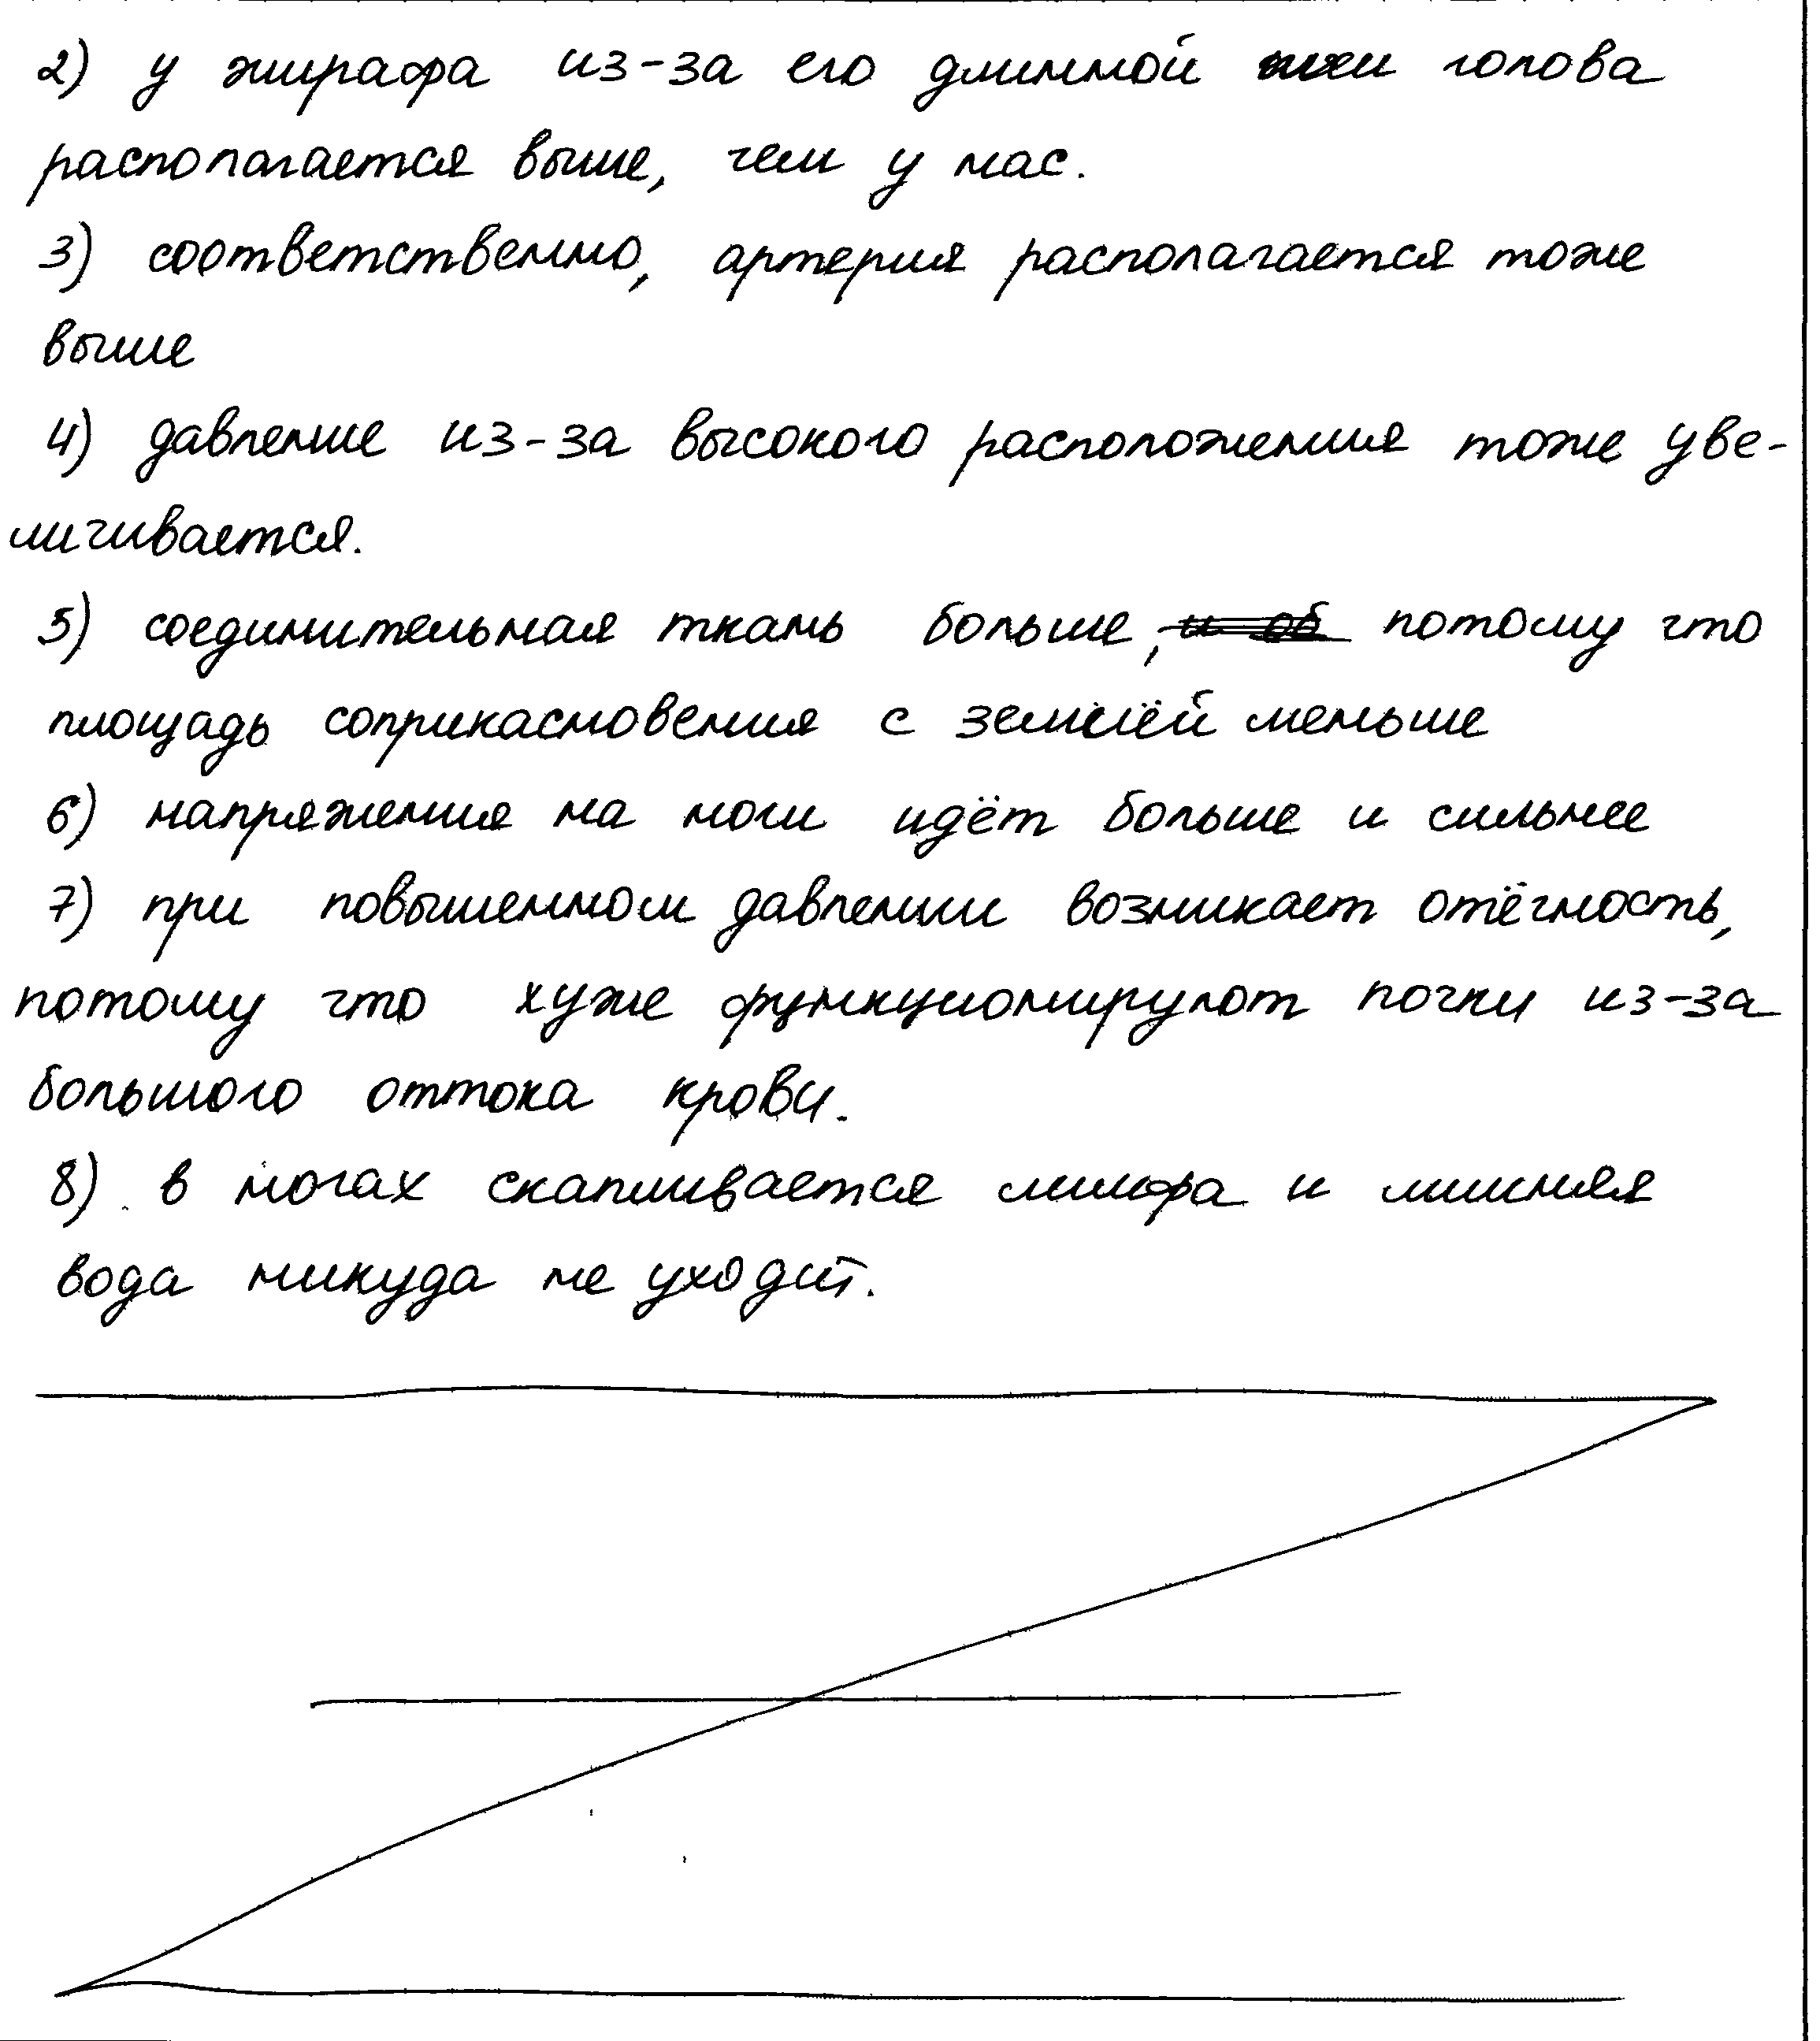 2) у жирафа из-за его длинной шеи голова
располагается выше, чем у нас.
3) соответственно, артерия располагается тоже
выше
4) давление из-за высокого расположения тоже уве-
личивается.
5) соединительная ткань больше, и об потому что
площадь соприкасновения с землёй меньше
6) напряжения на ноги идёт больше и сильнее
7) при повышенном давлении возникает отёчность,
потому что хуже функционируют почки из-за
большого оттока крови.
8) в ногах скапливается лимфа и лишняя
вода никуда не уходит.